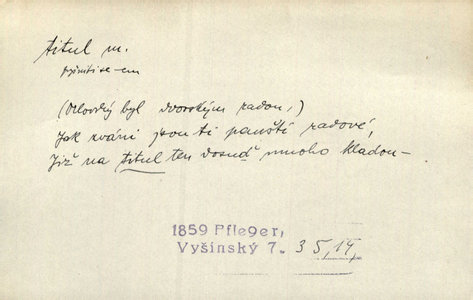 titul m.
(Orlovský byl dvorským radou,)
Jak zváni jsou ti panští radové,
Již na titul ten dosud mnoho kladou –
1859 Pfleger,
Vyšínský 7. 35,14